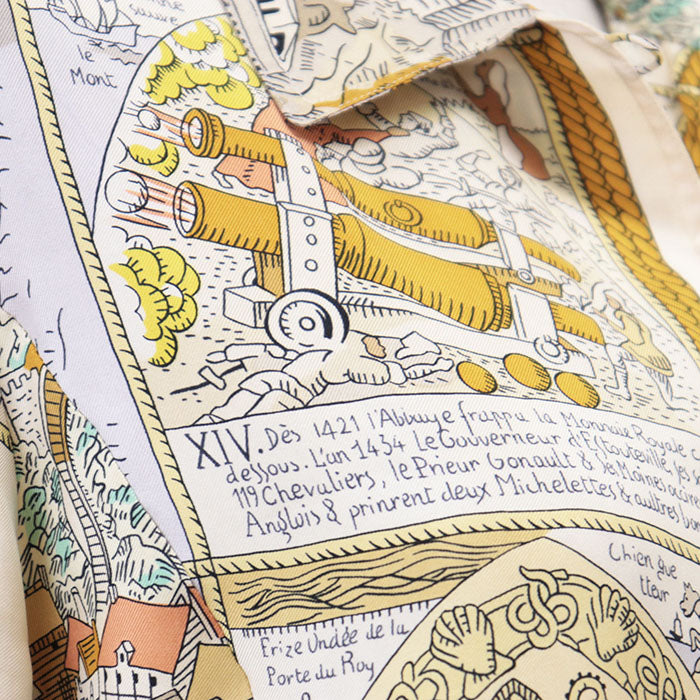 suave
le
Mont
XIV. Dès 1421 l'Abbaye frappa la Monnaie Royale
dessous. L'an 1434 Le Gouverneur d'Estouteville, ses
119 Chevaliers, le Prieur Gonault & Se Moines
Anglois & prinrent deux Michelettes & aultres
Chien gue
tteur
Frize Undée de la
Porte du Roy